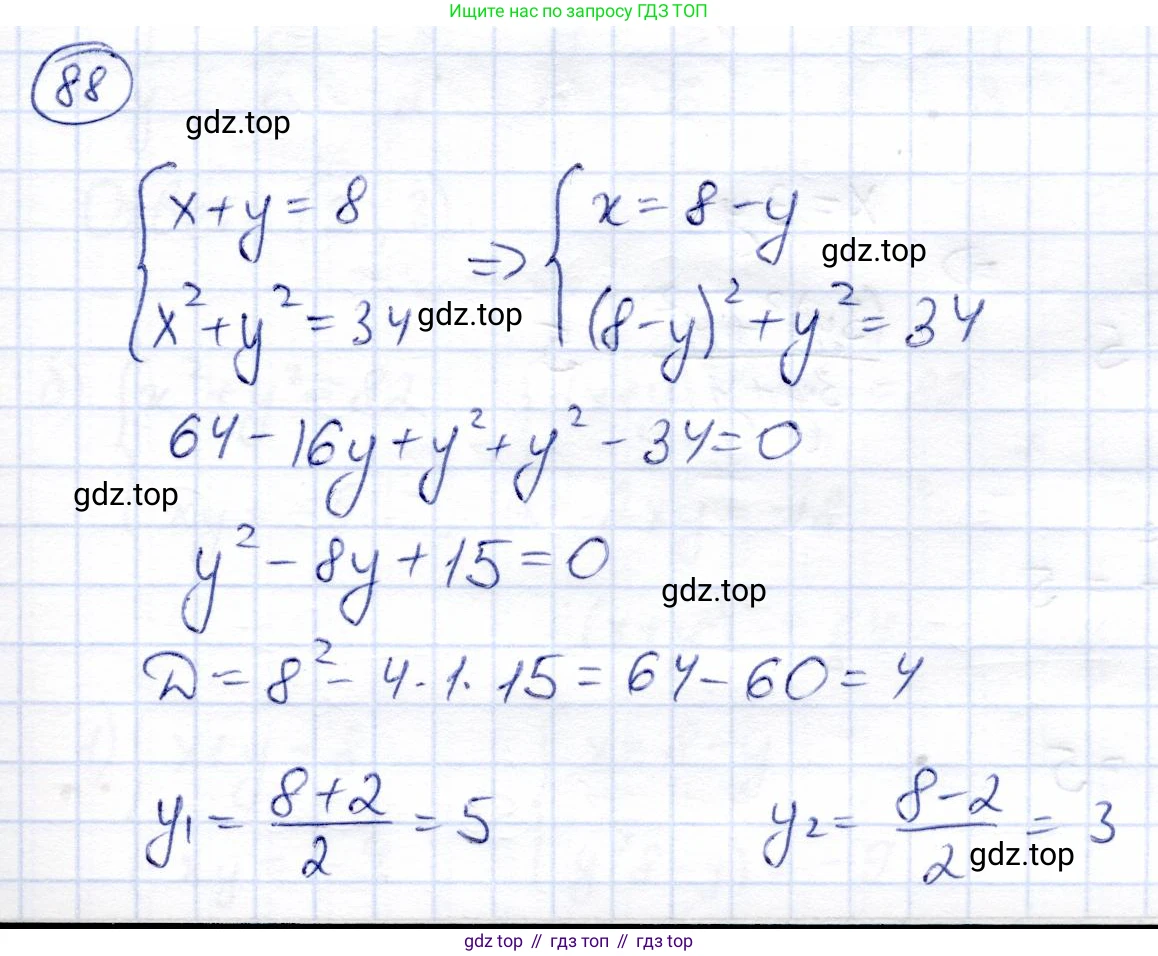 Ищите нас по запросу ГДЗ ТОП
88
gdz.top
{ x + y = 8 => { x = 8 - y
gdz.top
x² + y² = 34 (8 - y)² + y² = 34
gdz.top
64 - 16y + y² + y² - 34 = 0
gdz.top
y² - 8y + 15 = 0
gdz.top
D = 8² - 4 · 1 · 15 = 64 - 60 = 4
y₁ = (8 + 2)/2 = 5 y₂ = (8 - 2)/2 = 3
gdz.top
gdz top // гдз топ // гдз top